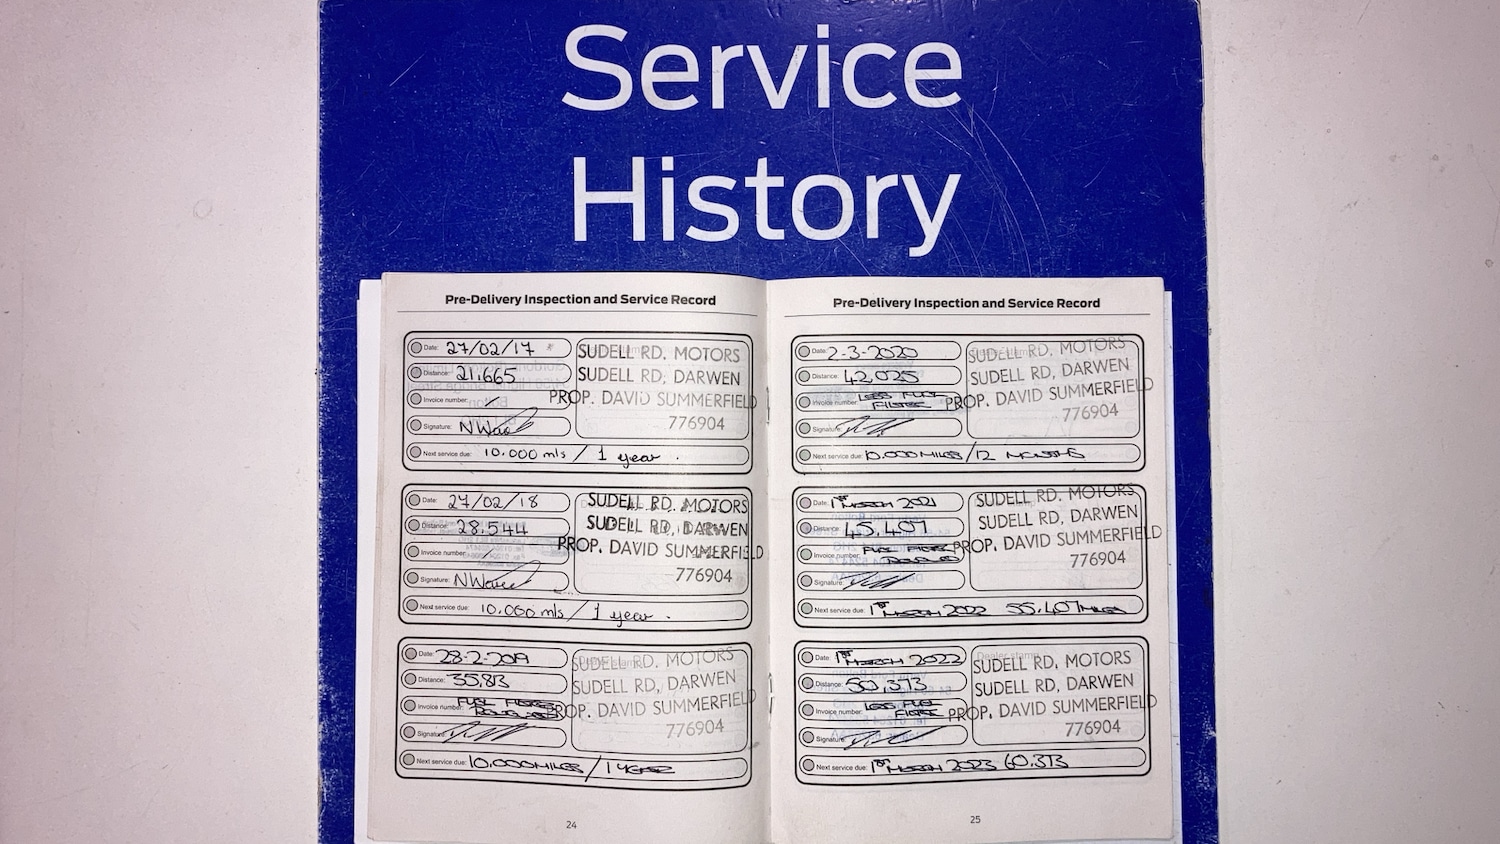 Service
History
Pre-Delivery Inspection and Service Record
Date: 27/02/17
Distance: 21,665
Invoice number:
Signature: NWard
Next service due: 10,000 mls / 1 year.
SUDELL RD. MOTORS
SUDELL RD, DARWEN
PROP. DAVID SUMMERFIELD
776904
Date: 27/02/18
Distance: 28,544
Invoice number:
Signature: NWard
Next service due: 10,000 mls / 1 year.
SUDELL RD. MOTORS
SUDELL RD, DARWEN
PROP. DAVID SUMMERFIELD
776904
Date: 28-2-2019
Distance: 35,813
Invoice number: FUEL FILTER
Signature:
Next service due: 10,000 MILES / 1 YEAR
SUDELL RD. MOTORS
SUDELL RD, DARWEN
PROP. DAVID SUMMERFIELD
776904
24
Pre-Delivery Inspection and Service Record
Date: 2-3-2020
Distance: 42,025
Invoice number: LESS FUEL
FILTER
Signature:
Next service due: 10,000 MILES / 12 MONTHS
SUDELL RD. MOTORS
SUDELL RD, DARWEN
PROP. DAVID SUMMERFIELD
776904
Date: 1ST MARCH 2021
Distance: 45,407
Invoice number: FUEL FILTER
Signature:
Next service due: 1ST MARCH 2022 55,407 MILES
SUDELL RD. MOTORS
SUDELL RD, DARWEN
PROP. DAVID SUMMERFIELD
776904
Date: 1ST MARCH 2022
Distance: 50,373
Invoice number: LESS FUEL
FILTER
Signature:
Next service due: 1ST MARCH 2023 60,373
Dealer stamp
SUDELL RD. MOTORS
SUDELL RD, DARWEN
PROP. DAVID SUMMERFIELD
776904
25